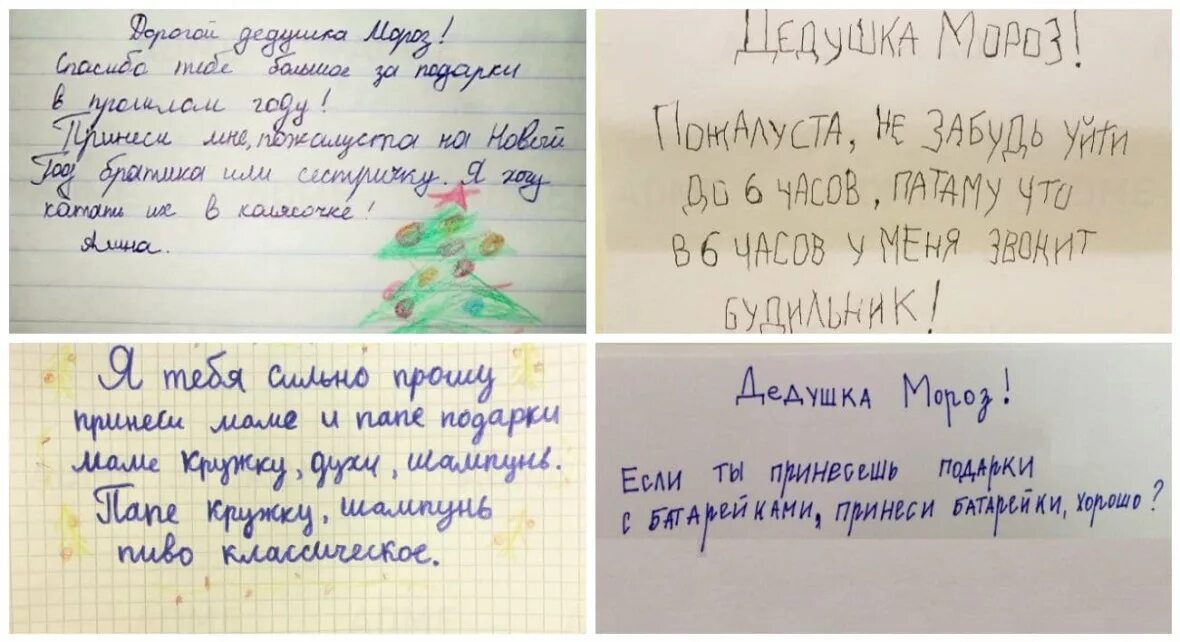 Дорогой дедушка Мороз!
Спасибо тебе большое за подарки
в прошлом году!
Принеси мне, пожалуйста на Новый
Год братика или сестричку. Я хочу
катать их в колясочке!
Алина.
ДЕДУШКА МОРОЗ!
ПОЖАЛУСТА, НЕ ЗАБУДЬ УЙТИ
ДО 6 ЧАСОВ, ПАТАМУ ЧТО
В 6 ЧАСОВ У МЕНЯ ЗВОНИТ
БУДИЛЬНИК!
Я тебя сильно прошу
принеси маме и папе подарки
маме кружку, духи, шампунь.
Папе кружку, шампунь
пиво классическое.
ДЕДУШКА МОРОЗ!
ЕСЛИ ТЫ ПРИНЕСЕШЬ ПОДАРКИ
С БАТАРЕЙКАМИ, ПРИНЕСИ БАТАРЕЙКИ, ХОРОШО?